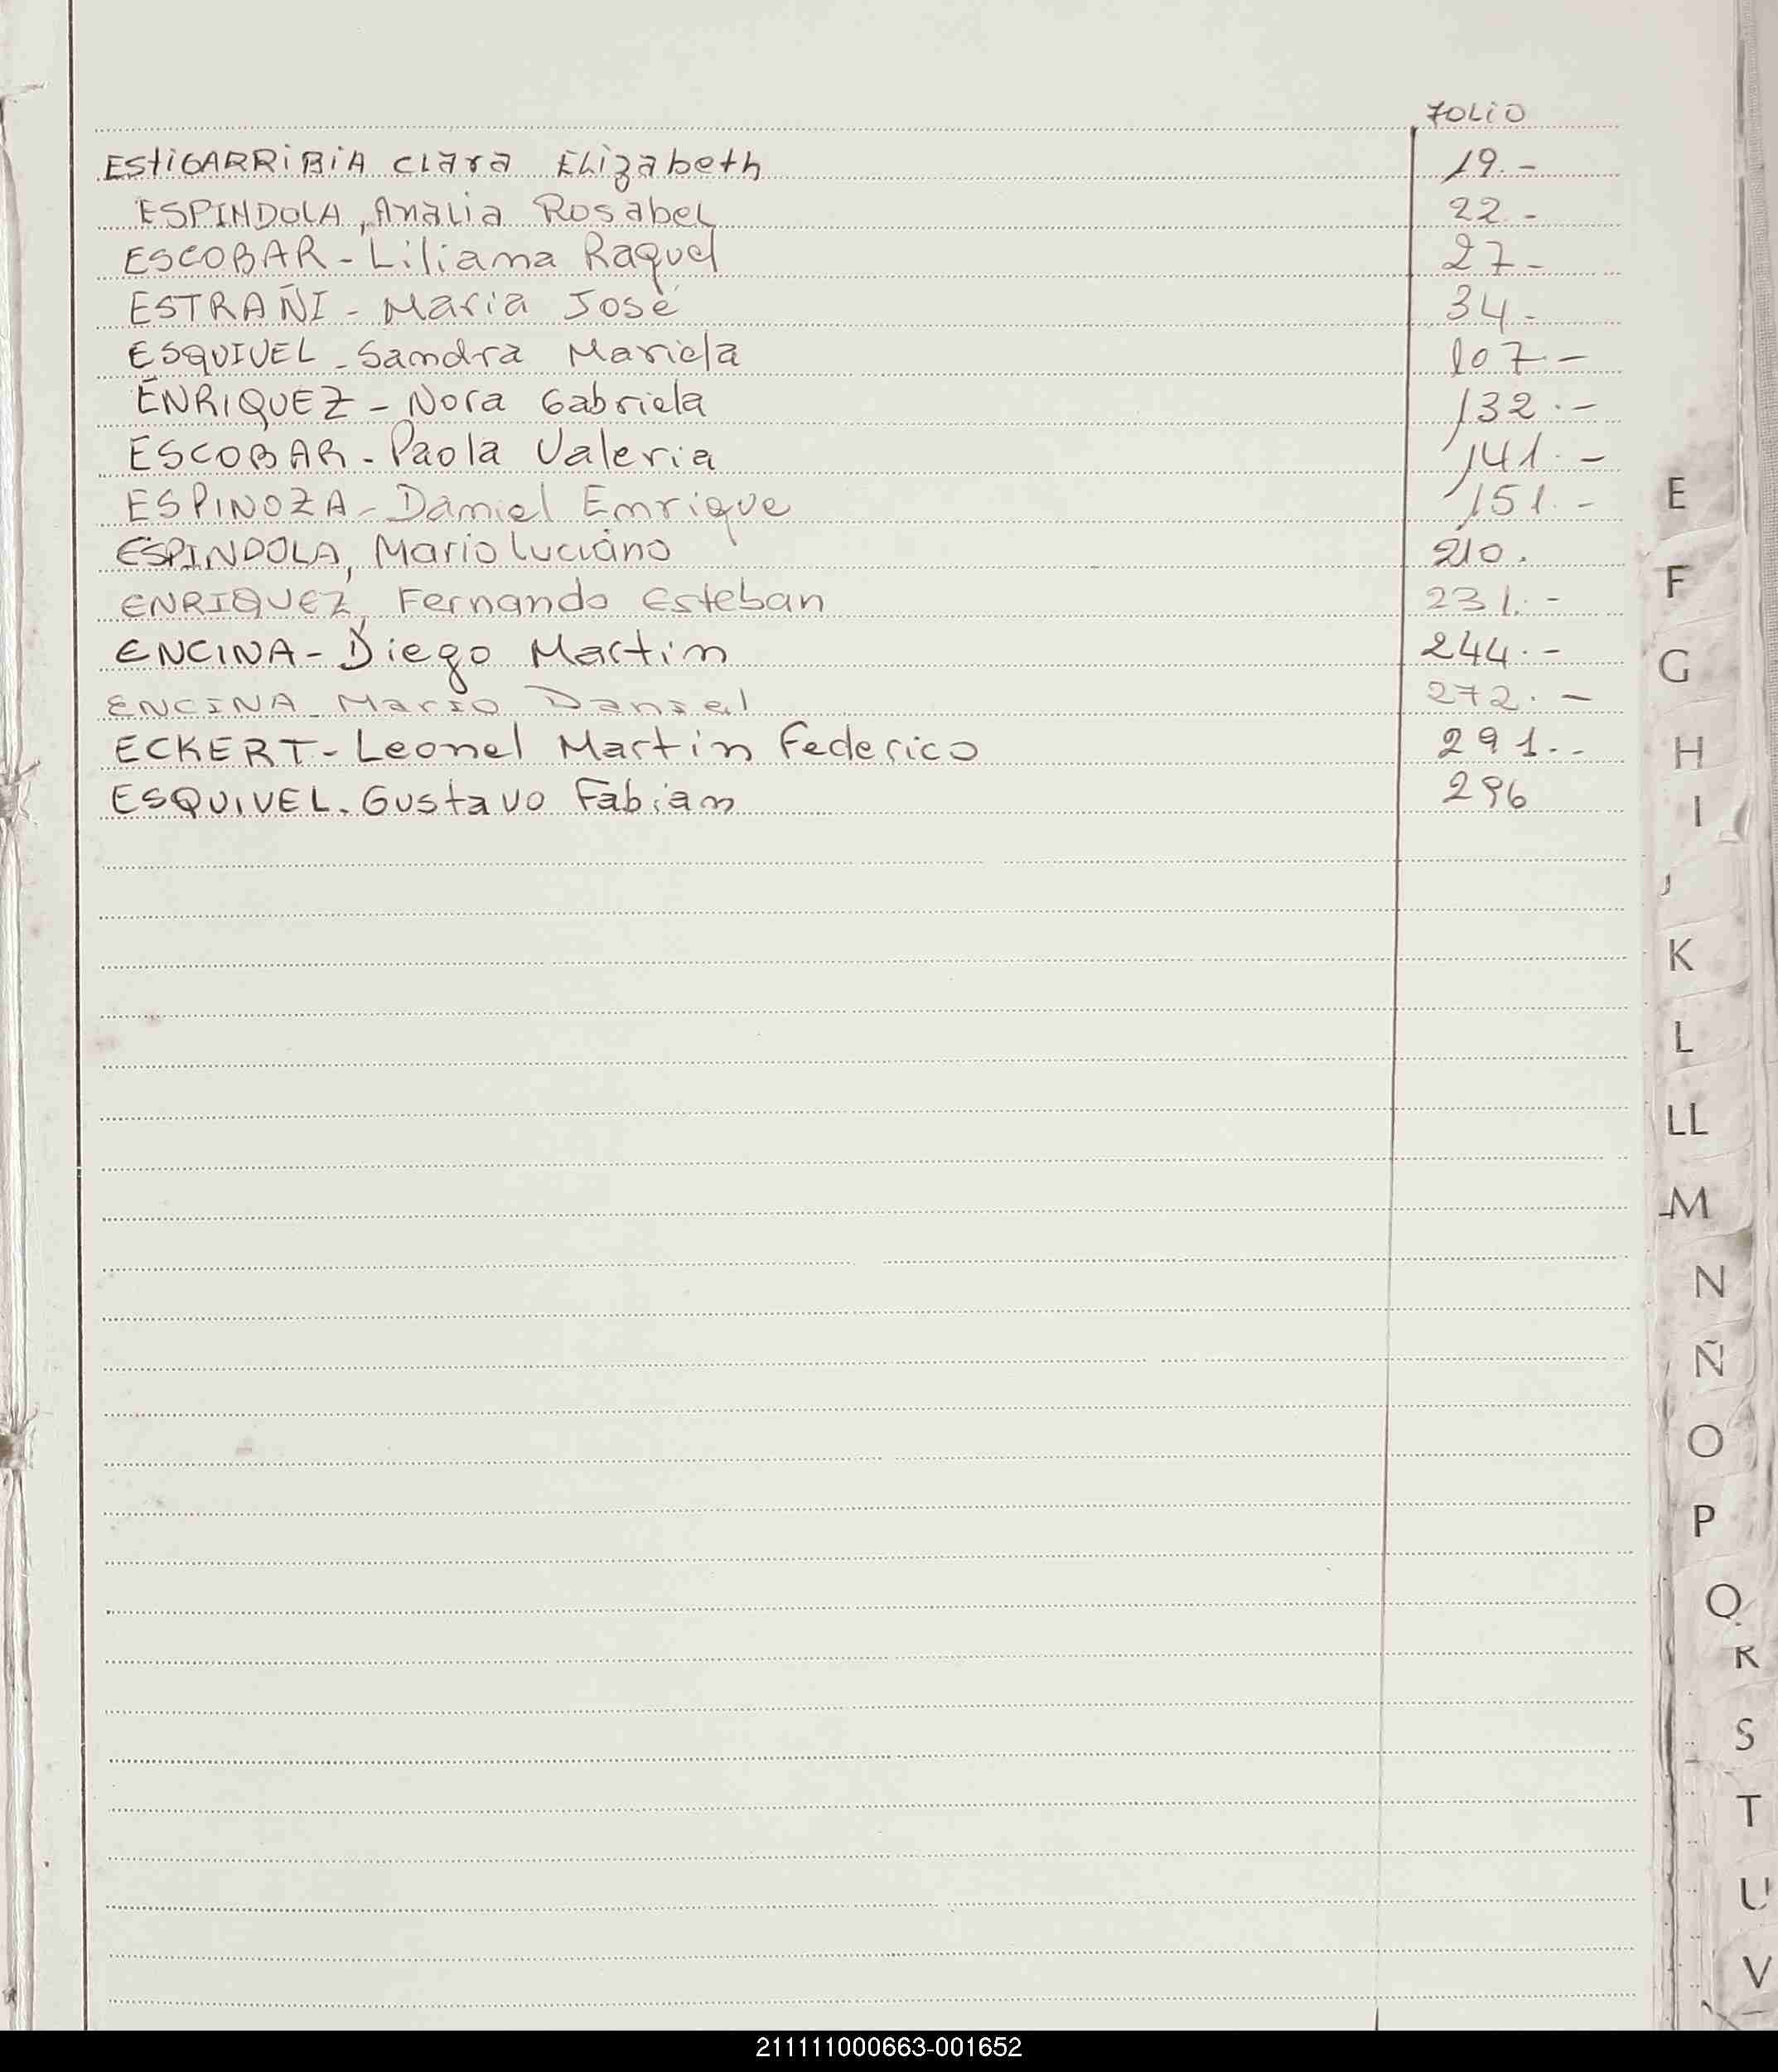 FOLIO
ESTIGARRIBIA Clara Elizabeth 19.-
ESPINDOLA, Analia Rosabel 22.-
ESCOBAR - Liliana Raquel 27-
ESTRAÑI - Maria José 34.-
ESQUIVEL - Sandra Mariela 107.-
ENRIQUEZ - Nora Gabriela 132.-
ESCOBAR - Paola Valeria 141.-
ESPINOZA - Daniel Enrique 151.-
ESPINDOLA, Mario Luciano 210.
ENRIQUEZ, Fernando Esteban 231.-
ENCINA - Diego Martin 244.-
ENCINA - Mario Daniel 272.-
ECKERT - Leonel Martin Federico 291..-
ESQUIVEL. Gustavo Fabian 296
E
F
G
H
I
J
K
L
LL
M
N
Ñ
O
P
Q
R
S
T
U
V
211111000663-001652